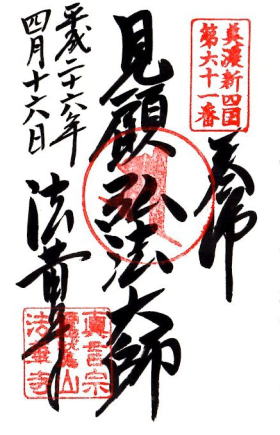 美濃新四国
第六十一番
奉拝
見願弘法大師
平成二十六年
四月十六日
法華寺
真言宗
法華寺